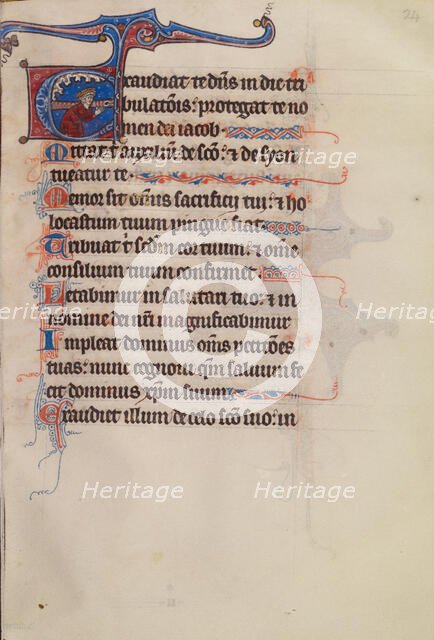 24
Exaudiat te dn̄s in die tri
bulatōis: protegat te no
men dei iacob.
Mittat t̄ auxiliū de scō: & de syon
tueatur te.
Memor sit om̄is sacrificij tui: & ho
locastum tuum pingue fiat.
Tribuat t̄ scd̄m cor tuum: & om̄e
consilium tuum confirmet.
Letabimur in salutari tuo: & in
nomine dei nr̄i magnificabimur
Impleat dominus om̄s petic̄ōes
tuas: nunc cognoui qm̄ saluum fe
cit dominus xp̄m suum.
Exaudiet illum de celo scō̄ suo: in
Heritage Heritage
Heritage Heritage
Heritage Heritage